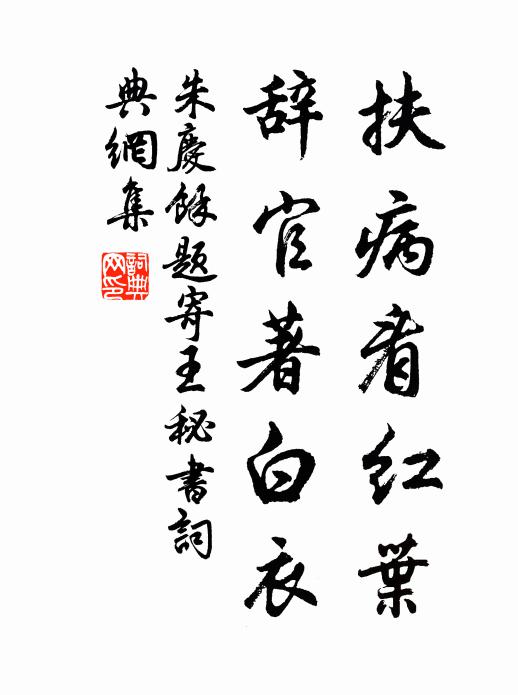 扶病看红葉
辞官著白衣
朱慶餘题寄王秘書詞
典網集
詞典网印